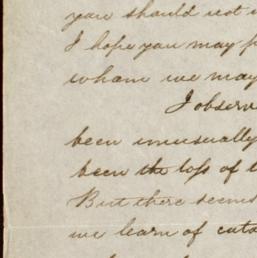 you should not
I hope you may
wham we may
I observe
been unusually
been the loss of
But there seems
we learn of cuts